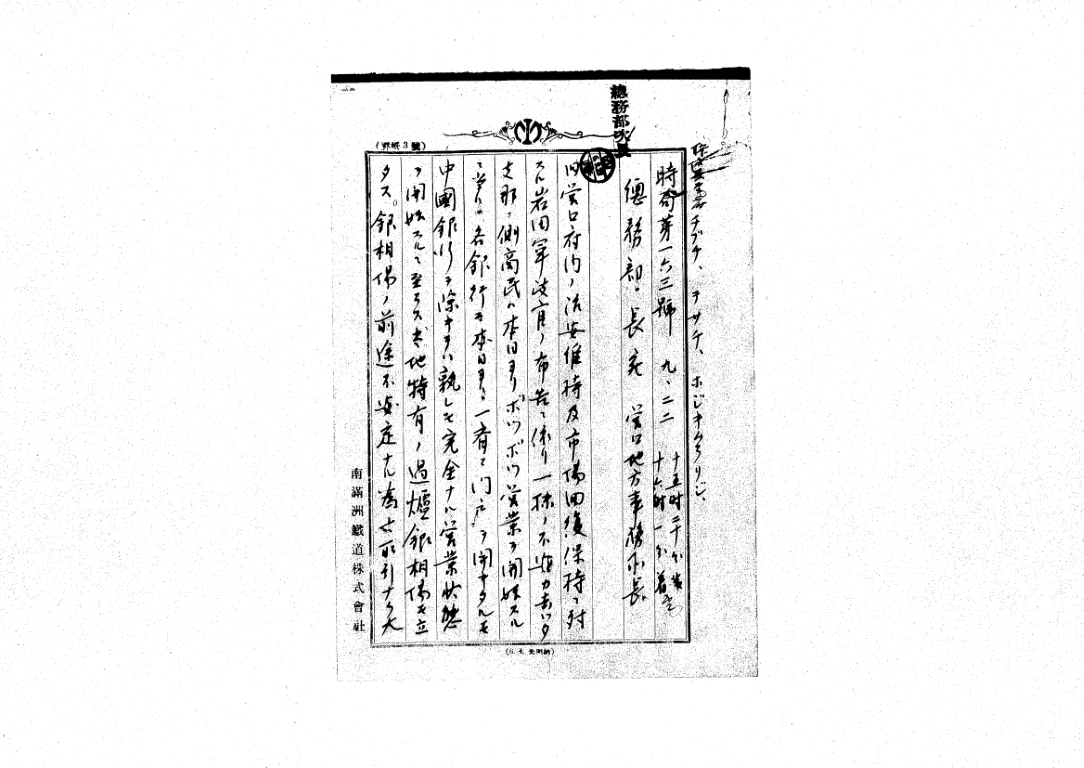 總務部次長
(罫紙3號)
チブチ、ヲサチ、ホジキムラリジ、
時局第一六三號 九、二二 十五時二十分発
十六時一分着
總務部長宛 営口地方事務所長
旧営口府内ノ治安維持及市場回復保持ニ対
スル岩田軍政官ノ布告ニ依リ一抹ノ不安力去リタ
支那側商民ハ本日ヨリボツボツ営業ヲ開始スル
ニ至リ各銀行モ本日ヨリ一斉ニ門戸ヲ開キタルモ
中國銀行ヲ除キテハ孰レモ完全ナル営業状態
ヲ開始スルニ至ラス当地特有ノ過爐銀相場モ立
タス。銀相場ノ前途不安定ナル為大取引ナク大
南滿洲鐵道株式會社